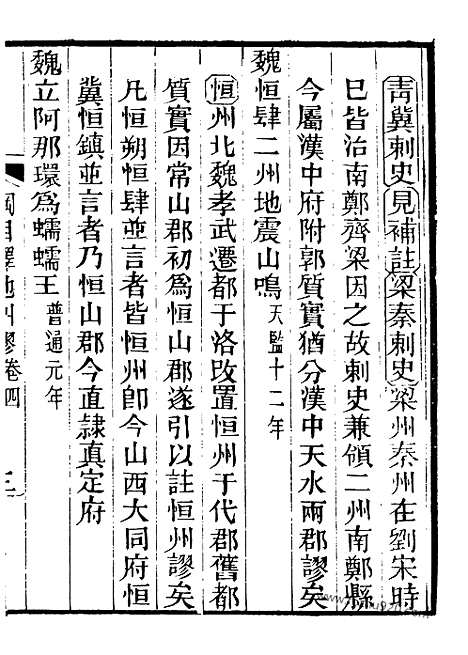 青冀刺史見補註梁秦刺史梁州秦州在劉宋時
已皆治南鄭齊梁因之故刺史兼領二州南鄭縣
今屬漢中府附郭質實猶分漢中天水兩郡謬矣
魏恒肆二州地震山鳴天監十二年
恒州北魏孝武遷都于洛改置恒州于代郡舊都
質實因常山郡初為恒山郡遂引以註恒州謬矣
凡恒朔恒肆並言者皆恒州卽今山西大同府恒
冀恒鎮並言者乃恒山郡今直隸真定府
魏立阿那瓌為蠕蠕王普通元年
綱目釋地糾謬卷四
三